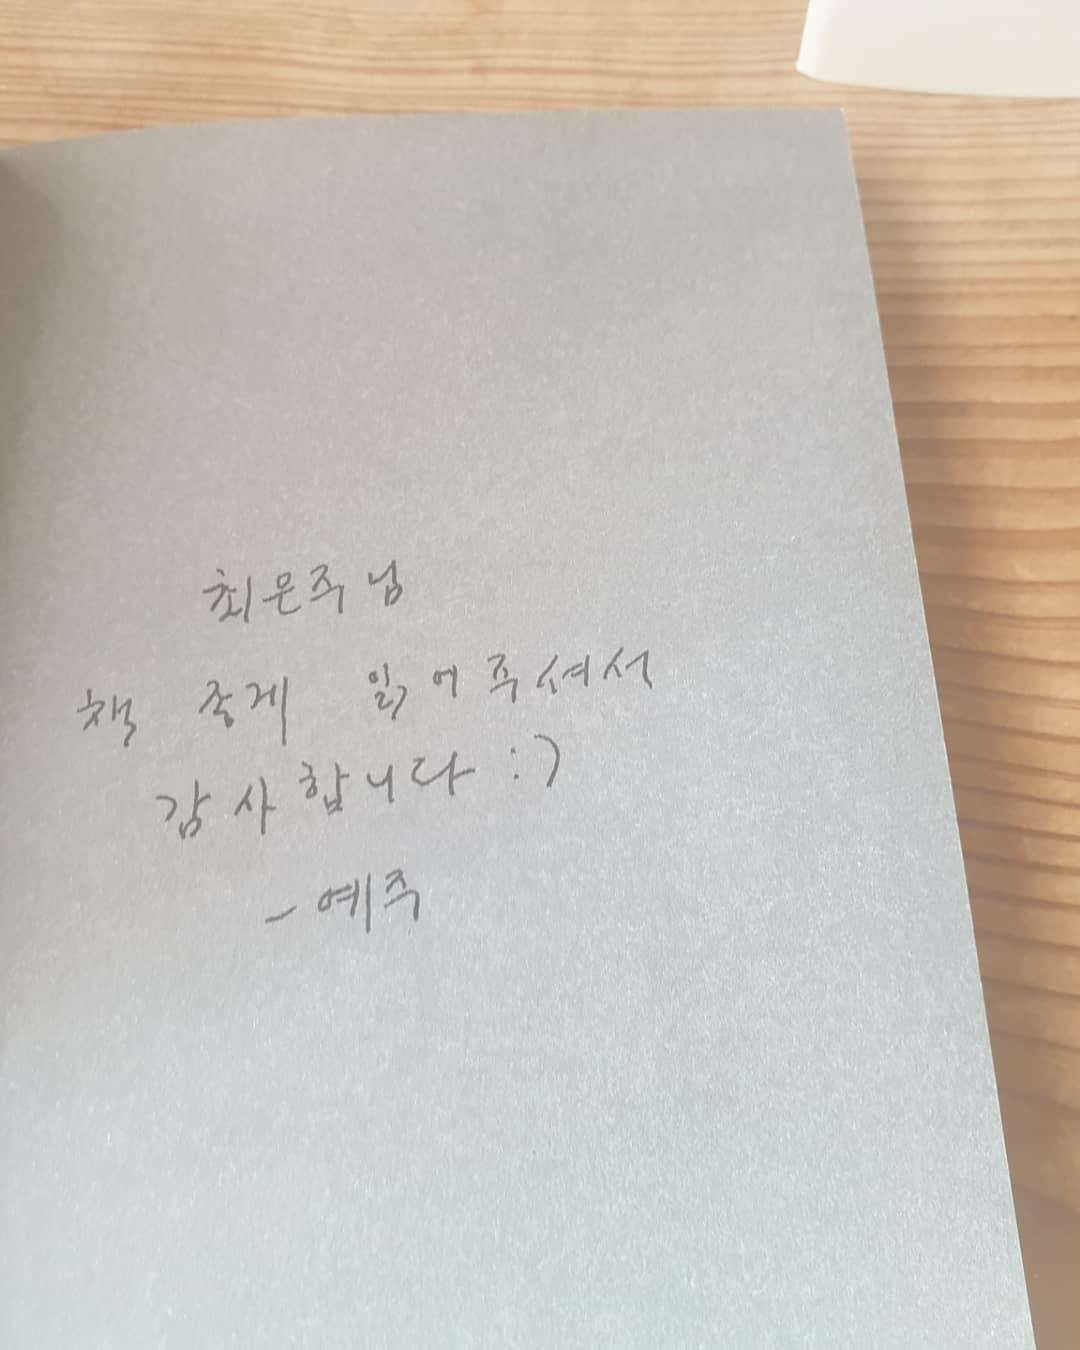 최은주님
책 좋게 읽어주셔서
감사합니다 :)
- 예주